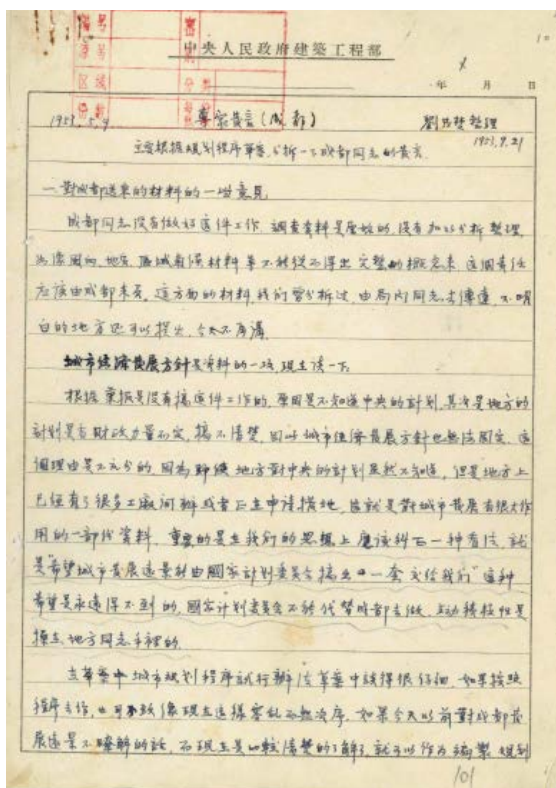 中央人民政府建築工程部
年 月 日
1953.5.9 專家發言(成都) 劉達容整理
1953.9.21
主要根據規划程序草案，分析一下成都同志的發言.
一.對成都送來的材料的一些意見
成都同志没有做好這件工作 調查資料是原始的，没有加以分析 整理，
當像風向，地質，區域氣候材料 等不能從 得出 完整的概念來 這個責任
應該由成都來負，這方面的材料，我們曾分析过，由局内同志去傳達，不明
白的地方还可以提出，今天不再講.
城市經濟發展方針是資料的一項，現在談一下.
根據彙報是没有搞這件工作的，原因是不知道中央的計划，其次是地方的
計划是否財政力量不定，搞不清楚，因此城市經濟發展方針也無法固定. 這
個理由是不充分的，因為即使地方對中央的計划虽然不知道，但是地方上
已經有了很多工廠 或者正在申請撥地，這就是對城市發展有很大作
用的一部份資料. 重要的是在我們的思想上應該糾正一種看法，就
是"希望城市發展遠景能由國家計划委員会搞出一套交给我們"這种
希望是永遠得不到的，國家計划委員会不能代替成都去做，主动積極性是
操在地方同志手裡的.
在草案中城市規划程序試行辦法草案中談得很仔細，如果按照
程序去作，也可不致像現在這樣零乱而無次序. 如果今天以前對成都發
展遠景不瞭解的話，而現在是比較清楚的了解了，就可以作为編製規划
101